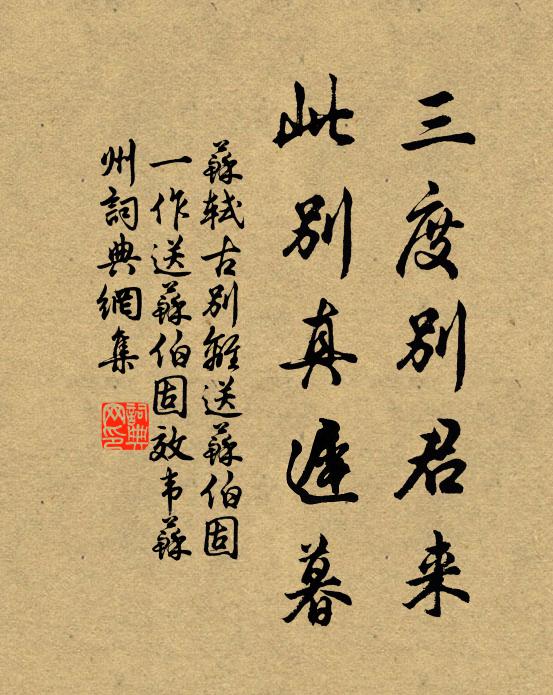 三度别君来
此别真遲暮
蘇軾古别離送蘇伯固
一作送蘇伯固效韦蘇
州詞典網集
詞典网印